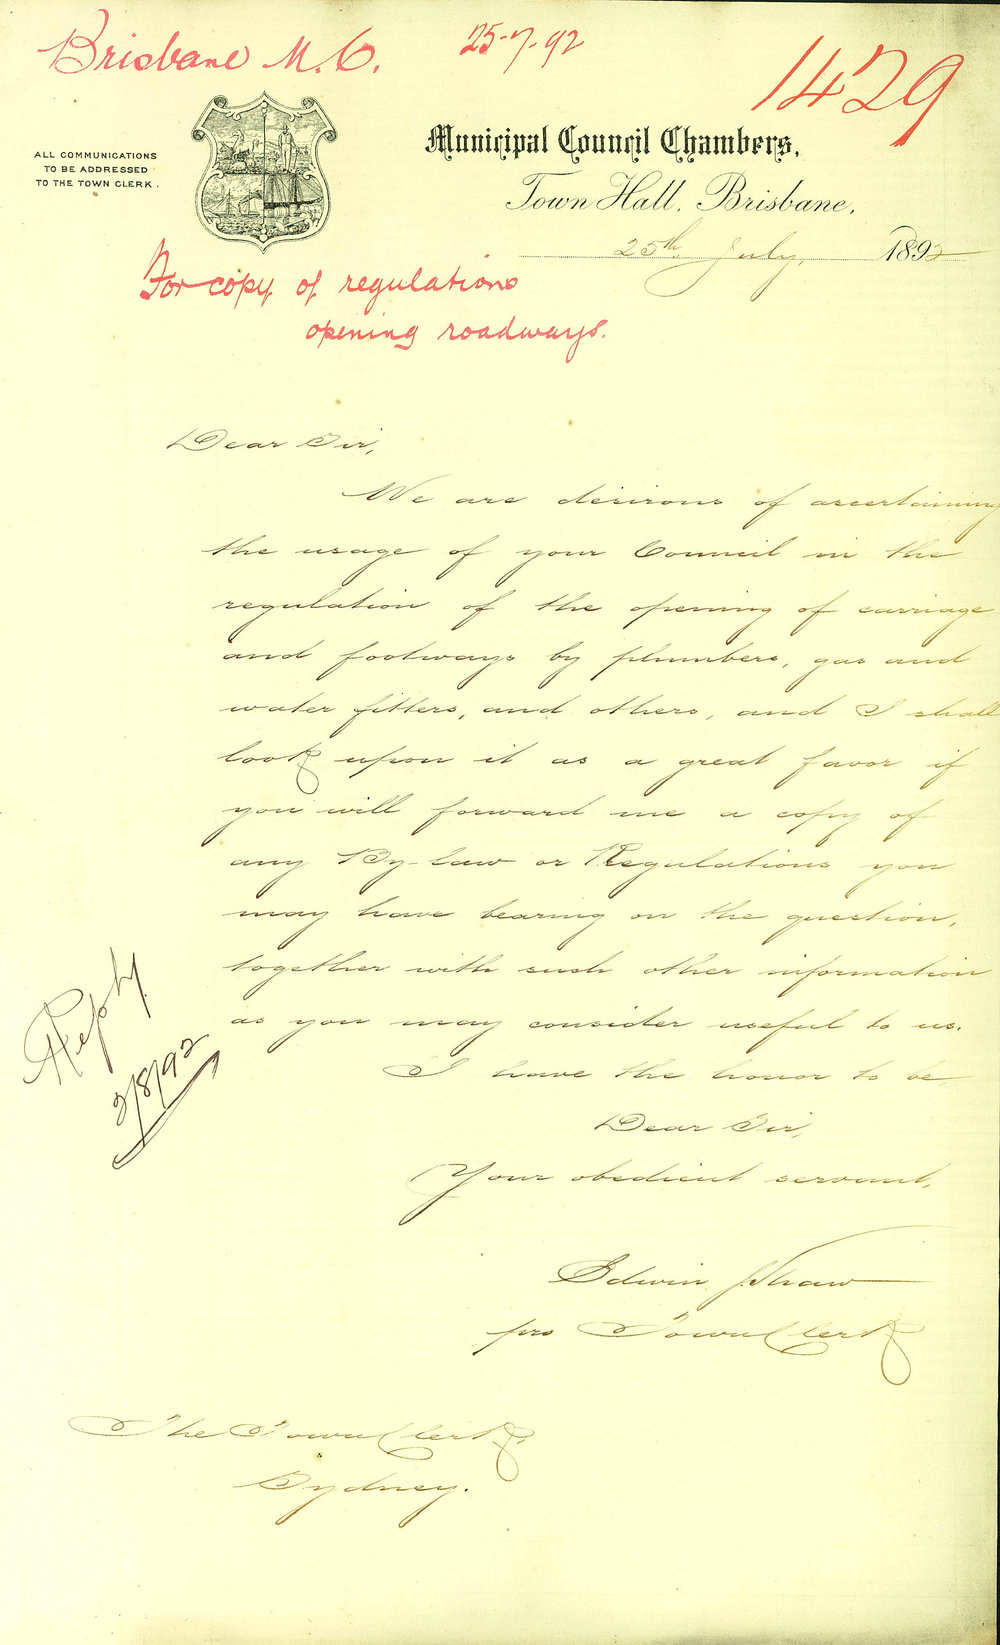 Brisbane M.C. 25-7-92
1429
ALL COMMUNICATIONS
TO BE ADDRESSED
TO THE TOWN CLERK.
Municipal Council Chambers,
Town Hall, Brisbane,
25th July, 1892
For copy of regulations
opening roadways.
Dear Sir,
We are desirous of ascertaining
the usage of your Council in the
regulation of the opening of carriage
and footways by plumbers, gas and
water fitters, and others, and I shall
look upon it as a great favor if
you will forward me a copy of
any By-law or Regulations you
may have bearing on the question,
together with such other information
as you may consider useful to us.
I have the honor to be
Dear Sir,
Your obedient servant,
Edwin J Shaw
pro Town Clerk
Reply
2/8/92
The Town Clerk,
Sydney.